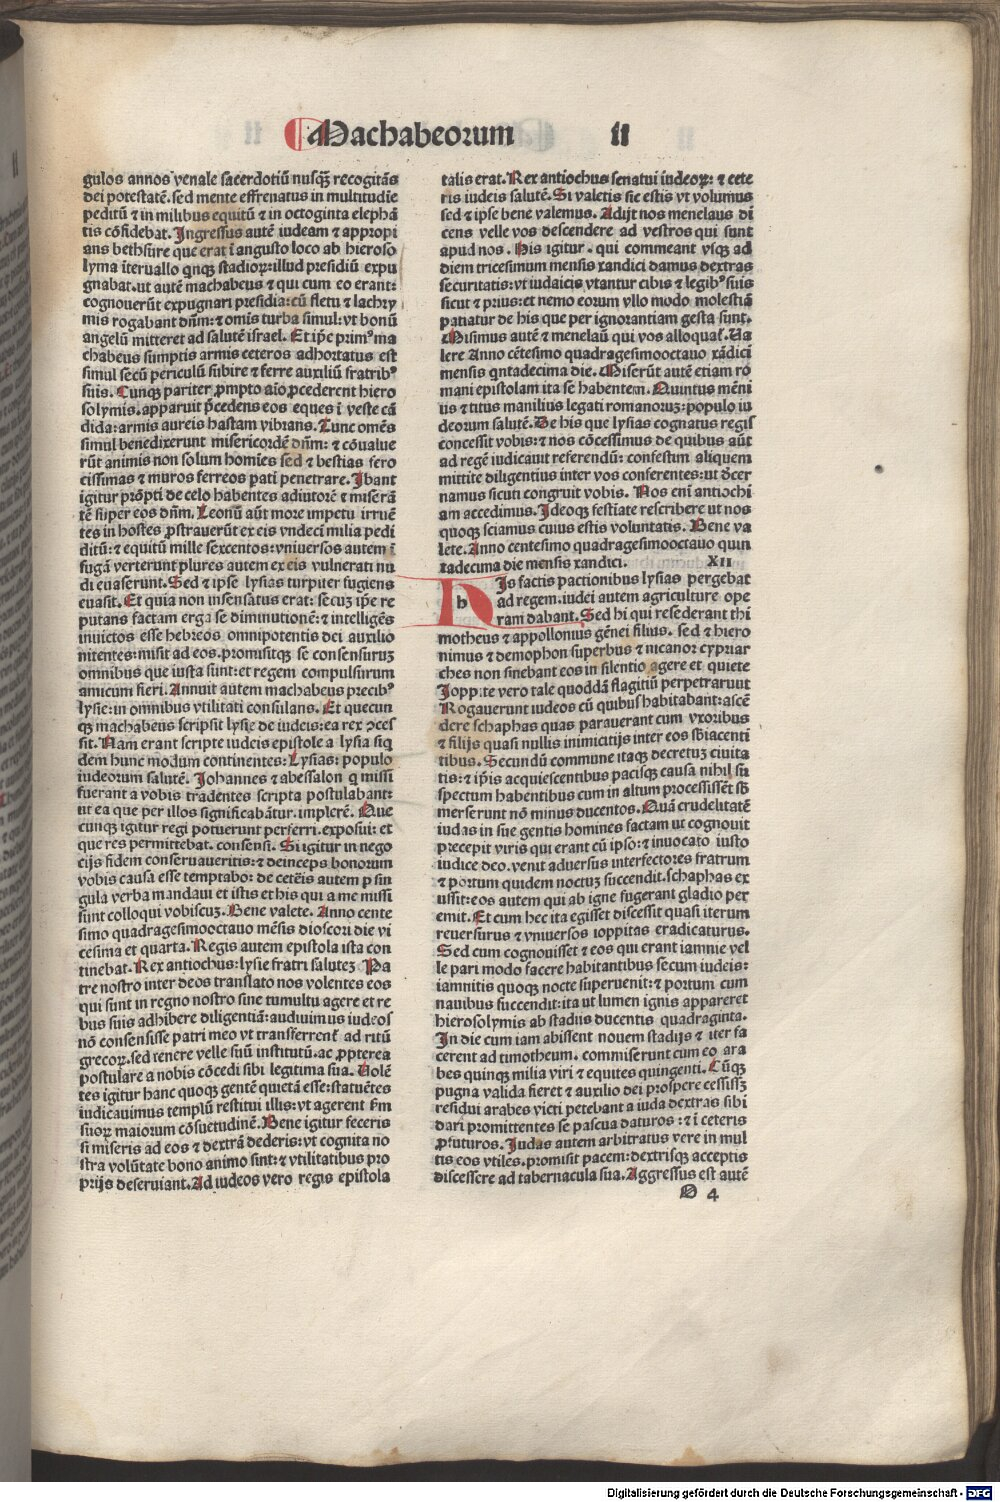 Machabeorum II
gulos annos venale sacerdotiũ nusqꝫ recogitãs
dei potestatẽ. sed mente effrenatus in multitudĩe
peditũ ⁊ in milibus equitũ ⁊ in octoginta elephã
tis cõfidebat. Ingressus autẽ iudeam ⁊ appropi
ans bethsure que erat ĩ angusto loco ab hieroso
lyma ĩteruallo qnqꝫ stadioꝝ: illud presidiũ expu
gnabat. ut autẽ machabeus ⁊ qui cum eo erant:
cognouerũt expugnari presidia: cũ fletu ⁊ lachry
mis rogabant dñm: ⁊ omĩs turba simul: vt bonũ
angelũ mitteret ad salutẽ israel. Et ip̃e primꝰ ma
chabeus sumptis armis ceteros adhortatus est
simul secũ periculũ subire ⁊ ferre auxiliũ fratribꝰ
suis. Cunqꝫ pariter ꝓmpto aĩo ꝓcederent hiero
solymis. apparuit p̃cedens eos eques ĩ veste cã
dida: armis aureis hastam vibrans. Tunc omẽs
simul benedixerunt misericordẽ dñm: ⁊ cõualue
rũt animis non solum homĩes sed ⁊ bestias fero
cissimas ⁊ muros ferreos pati penetrare. Ibant
igitur prõpti de celo habentes adiutorẽ ⁊ miserã
tẽ super eos dñm. Leonũ aũt more impetu irruẽ
tes in hostes ꝓstrauerũt ex eis vndecĩ milia pedi
ditũ: ⁊ equitũ mille sexcentos: vniuersos autem ĩ
fugã verterunt plures autem ex eis vulnerati nu
di euaserunt. Sed ⁊ ipse lysias turpiter fugiens
euasit. Et quia non insensatus erat: secuꝫ ip̃e re
putans factam erga se diminutionẽ: ⁊ intelligẽs
inuictos esse hebreos omnipotentis dei auxilio
nitentes: misit ad eos. promisitqꝫ se consensuruꝫ
omnibus que iusta sunt: et regem compulsurum
amicum fieri. Annuit autem machabeus precibꝰ
lysie: in omnibus vtilitati consulans. Et quecun
qꝫ machabeus scripsit lysie de iudeis: ea rex ꝯces
sit. Nam erant scripte iudeis epistole a lysia siq
dem hunc modum continentes: Lysias: populo
iudeorum salutẽ. Johannes ⁊ abessalon q missi
fuerant a vobis tradentes scripta postulabant:
ut ea que per illos significabãtur. implerẽ. Que
cunqꝫ igitur regi potuerunt perferri. exposui: et
que res permittebat. consensi. Si igitur in nego
cijs fidem conseruaueritis: ⁊ deinceps bonorum
vobis causa esse temptabo: de ceteĩs autem ꝑ sin
gula verba mandaui et istis et his qui a me missi
sunt colloqui vobiscuꝫ. Bene valete. Anno cente
simo quadragesimooctauo mẽsis dioscori die vi
cesima et quarta. Regis autem epistola ista con
tinebat. Rex antiochus: lysie fratri salutez. Pa
tre nostro inter deos translato nos volentes eos
qui sunt in regno nostro sine tumultu agere et re
bus suis adhibere diligentiã: audiuimus iudeos
nõ consensisse patri meo vt transferrenť ad ritũ
grecoꝝ. sed tenere velle suũ institutũ. ac ꝓpterea
postulare a nobis cõcedi sibi legitima sua. Volẽ
tes igitur hanc quoqꝫ gentẽ quietã esse: statuẽtes
iudicauimus templũ restitui illis: vt agerent ẜm
suoꝝ maiorum cõsuetudinẽ. Bene igitur feceris
si miseris ad eos ⁊ dextrã dederis: vt cognita no
stra volũtate bono animo sint: ⁊ vtilitatibus pro
prijs deseruiant. Ad iudeos vero regis epistola
talis erat. Rex antiochus senatui iudeoꝝ: ⁊ cete
ris iudeis salutẽ. Si valetis sic estis vt volumus
sed ⁊ ipse bene valemus. Adijt nos menelaus di
cens velle vos descendere ad vestros qui sunt
apud nos. His igitur. qui commeant vsqꝫ ad
diem tricesimum mensis xandici damus dextras
securitatis: vt iudaicis vtantur cibis ⁊ legibꝰ suis
sicut ⁊ prius: et nemo eorum vllo modo molestiã
patiatur de his que per ignorantiam gesta sunt.
Misimus autẽ ⁊ menelaũ qui vos alloquať. Va
lere Anno cẽtesimo quadragesimooctauo xãdici
mensis qntadecima die. Miserũt autẽ etiam ro
mani epistolam ita se habentem. Quintus mẽni
us ⁊ titus manilius legati romanoruꝫ: populo iu
deorum salutẽ. De his que lysias cognatus regis
concessit vobis: ⁊ nos cõcessimus de quibus aũt
ad regẽ iudicauit referendũ: confestim aliquem
mittite diligentius inter vos conferentes: ut d̃cer
namus sicuti congruit vobis. Nos eni antiochi
am accedimus. Ideoqꝫ festiate rescribere ut nos
quoqꝫ sciamus cuius estis voluntatis. Bene va
lete. Anno centesimo quadragesimooctauo quin
tadecima die mensis xandici. XII
h
Is factis pactionibus lysias pergebat
ad regem. iudei autem agriculture ope
ram dabant. Sed hi qui resederant thi
motheus ⁊ appollonius gẽnei filius. sed ⁊ hiero
nimus ⁊ demophon superbus ⁊ nicanor cypriar
ches non sinebant eos in silentio agere et quiete
Jopp:te vero tale quoddã flagitiũ perpetrarunt
Rogauerunt iudeos cũ quibus habitabant: ascẽ
dere schaphas quas parauerant cum vxoribus
⁊ filijs quasi nullis inimicitijs inter eos sbiacenti
tibus. Secundũ commune itaqꝫ decretuꝫ ciuita
tis: ⁊ ip̃is acquiescentibus pacisqꝫ causa nihil su
spectum habentibus cum in altum processissẽt sb
merserunt nõ minus ducentos. Quã crudelitatẽ
iudas in sue gentis homines factam ut cognouit
precepit viris qui erant cũ ipso: ⁊ inuocato iusto
iudice deo. venit aduersus interfectores fratrum
⁊ portum quidem noctuꝫ succendit. schaphas ex
ussit: eos autem qui ab igne fugerant gladio per
emit. Et cum hec ita egisset discessit quasi iterum
reuersurus ⁊ vniuersos ioppitas eradicaturus.
Sed cum cognouisset ⁊ eos qui erant iamnie vel
le pari modo facere habitantibus secum iudeis:
iamnitis quoqꝫ nocte superuenit: ⁊ portum cum
nauibus succendit: ita ut lumen ignis appareret
hierosolymis ab stadiis ducentis quadraginta.
In die cum iam abissent nouem stadijs ⁊ iter fa
cerent ad timotheum. commiserunt cum eo ara
bes quinqꝫ milia viri ⁊ equites quingenti. Cũqꝫ
pugna valida fieret ⁊ auxilio dei prospere cessisset
residui arabes victi petebant a iuda dextras sibi
dari promittentes se pascua daturos: ⁊ ĩ ceteris
ꝓfuturos. Judas autem arbitratus vere in mul
tis eos vtiles. promisit pacem: dextrisqꝫ acceptis
discessere ad tabernacula sua. Aggressus est autẽ
D 4
Digitalisierung gefördert durch die Deutsche Forschungsgemeinschaft - DFG